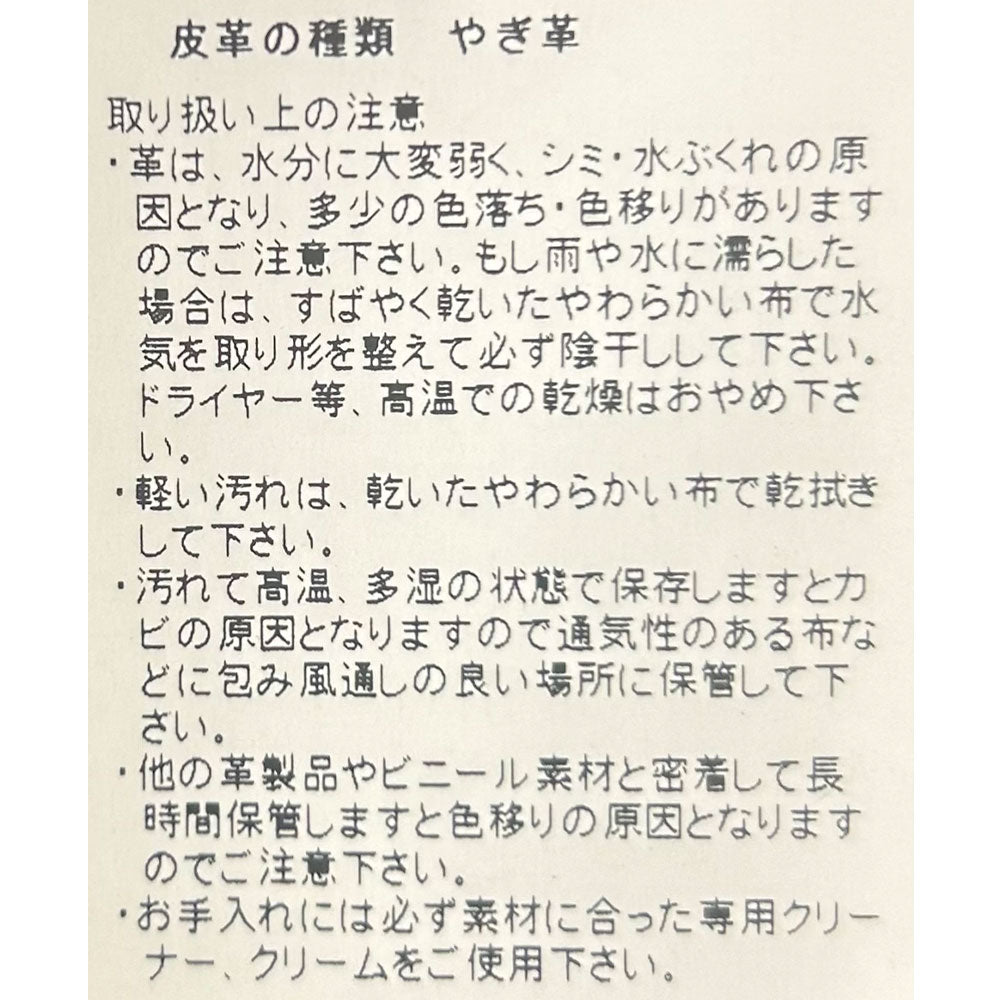 皮革の種類　やぎ革
取り扱い上の注意
・革は、水分に大変弱く、シミ・水ぶくれの原
因となり、多少の色落ち・色移りがあります
のでご注意下さい。もし雨や水に濡らした
場合は、すばやく乾いたやわらかい布で水
気を取り形を整えて必ず陰干しして下さい。
ドライヤー等、高温での乾燥はおやめ下さ
い。
・軽い汚れは、乾いたやわらかい布で乾拭き
して下さい。
・汚れて高温、多湿の状態で保存しますとカ
ビの原因となりますので通気性のある布な
どに包み風通しの良い場所に保管して下
さい。
・他の革製品やビニール素材と密着して長
時間保管しますと色移りの原因となります
のでご注意下さい。
・お手入れには必ず素材に合った専用クリー
ナー、クリームをご使用下さい。